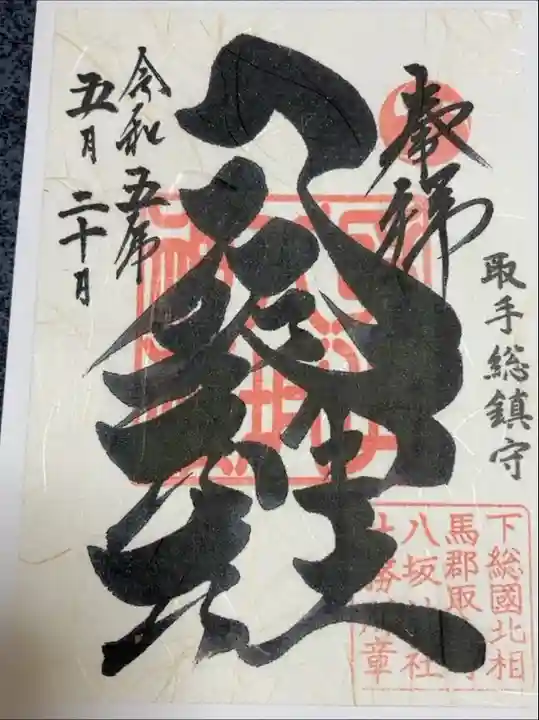 取手総鎮守
奉拝
八坂神社
令和五年
五月二十日
下総國北相
馬郡取
八坂 社
章